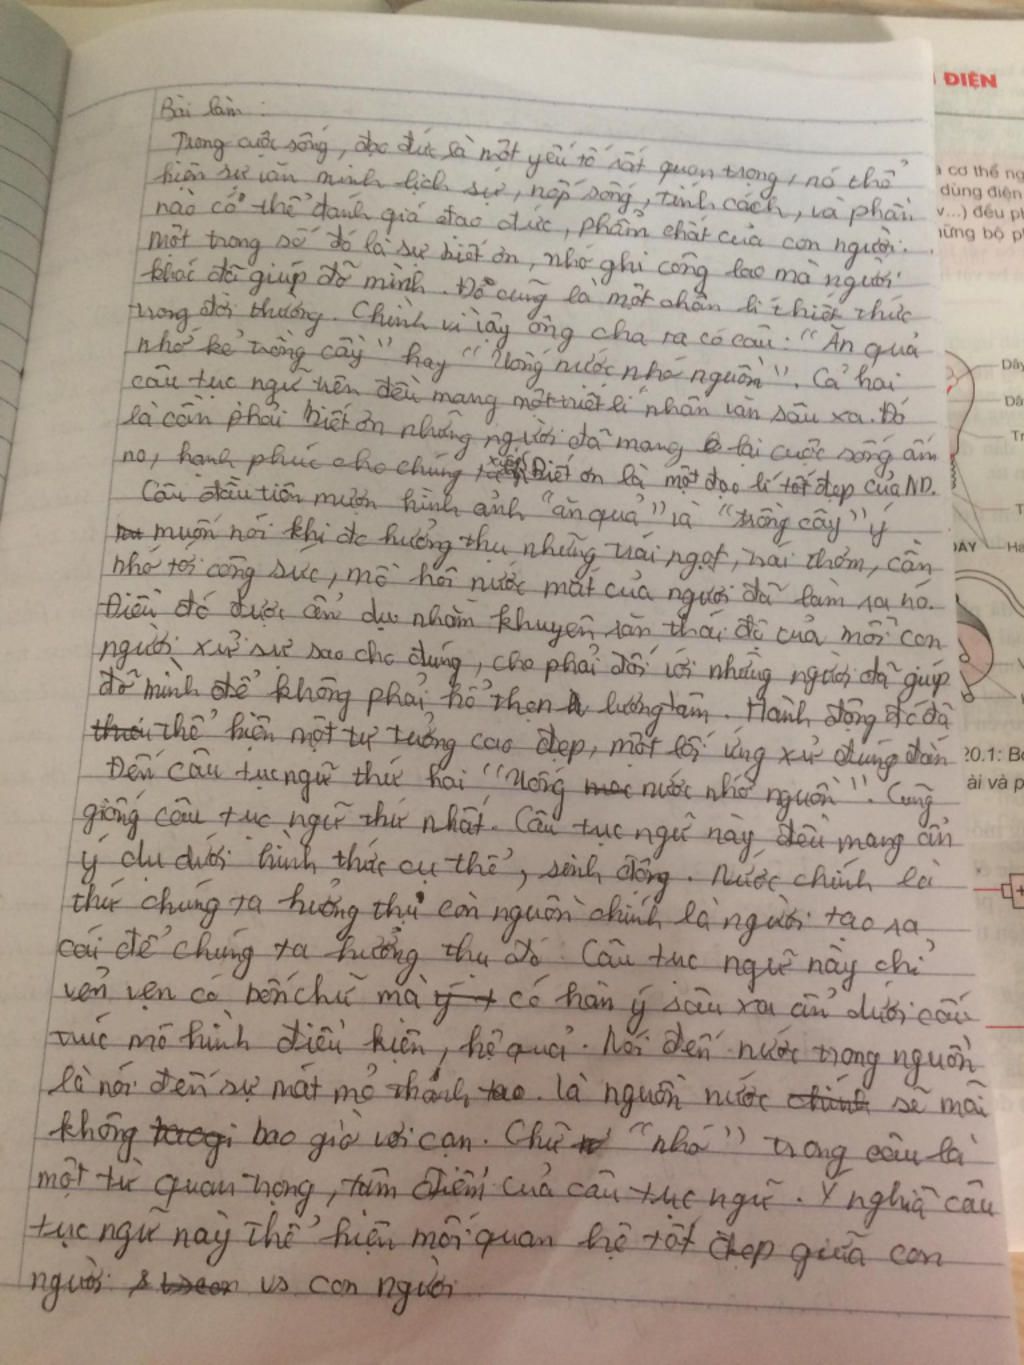 Bài làm :
Trong cuộc sống, đạo đức là một yếu tố rất quan trọng, nó thể
hiện sự văn minh lịch sự, nếp sống, tính cách, và phần
nào có thể đánh giá đạo đức, phẩm chất của con người.
Một trong số đó là sự biết ơn, nhớ ghi công lao mà người
khác đã giúp đỡ mình. Đó cũng là một chân lí thiết thức
trong đời thường. Chính vì vậy ông cha ra có câu: "Ăn quả
nhớ kẻ trồng cây" hay "Uống nước nhớ nguồn". Cả hai
câu tục ngữ trên đều mang một triết lí nhân văn sâu xa. Đó
là cần phải biết ơn những người đã mang lại cuộc sống ấm
no, hạnh phúc cho chúng Biết ơn là một đạo lí tốt đẹp của ND.
Câu đầu tiên mượn hình ảnh "ăn quả" và "trồng cây" ý
muốn nói khi đc hưởng thụ những trái ngọt, trái thơm, cần
nhớ tới công sức, mồ hôi nước mắt của người đã làm ra nó.
Điều đó được ẩn dụ nhằm khuyên răn thái độ của mỗi con
người xử sự sao cho đúng, cho phải đối với những người đã giúp
đỡ mình để không phải hổ thẹn lương tâm. Hành động đó đã
thể hiện một tư tưởng cao đẹp, một lối ứng xử đúng đắn
Đến câu tục ngữ thứ hai "Uống nước nhớ nguồn". Cũng
giống câu tục ngữ thứ nhất. Câu tục ngữ này đều mang ẩn
ý dụ dưới hình thức cụ thể, sinh động. Nước chính là
thứ chúng ta hưởng thụ còn nguồn chính là người tạo ra
cái để chúng ta hưởng thụ đó. Câu tục ngữ này chỉ
vẻn vẹn có bốn chữ mà có hàn ý sâu xa ẩn dưới cấu
trúc mô hình điều kiện, hệ quả. Nói đến nước trong nguồn
là nói đến sự mát mẻ là nguồn nước sẽ mãi
không bao giờ vơi cạn. Chữ "nhớ" trong câu là
một từ quan trọng, tâm điểm của câu tục ngữ. Ý nghĩa câu
tục ngữ này thể hiện mối quan hệ tốt đẹp giữa con
người vs con người
ĐIỆN
cơ thể ng
dùng điện
v...) đều ph
những bộ ph
Dây
Tr
DÂY
20.1: B
ài và p